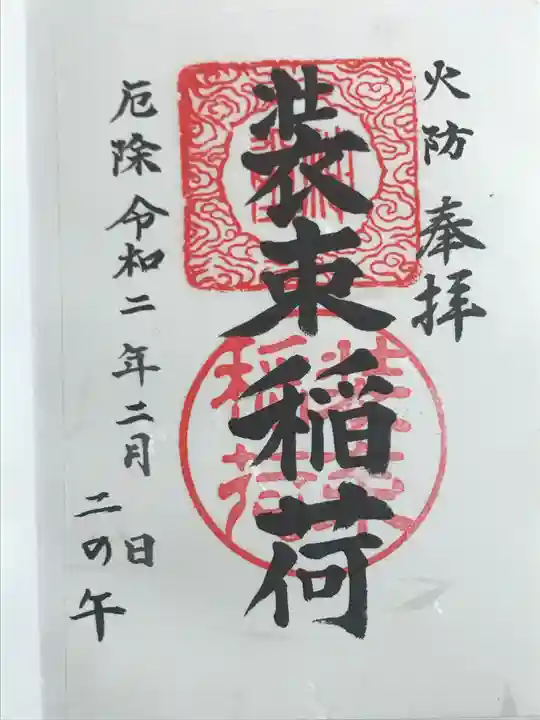 火防 奉拝
装束稲荷
装束
稲荷
厄除 令和二年二月 日
二の午